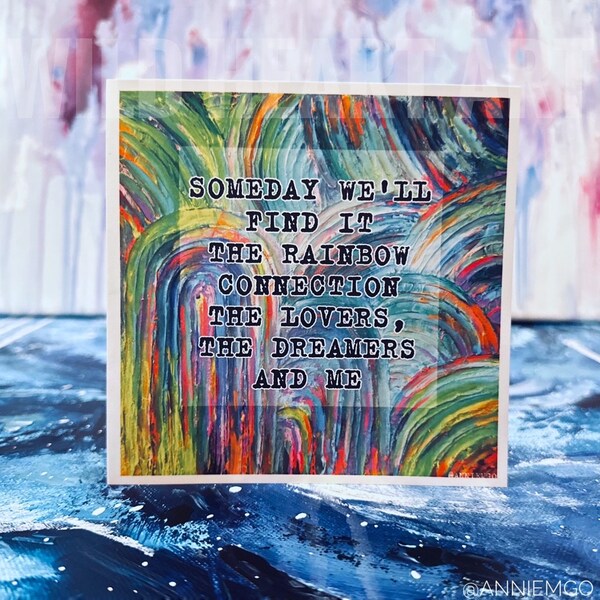 WILDHEART ART
SOMEDAY WE'LL
FIND IT
THE RAINBOW
CONNECTION
THE LOVERS,
THE DREAMERS
AND ME
@ANNIEMGO